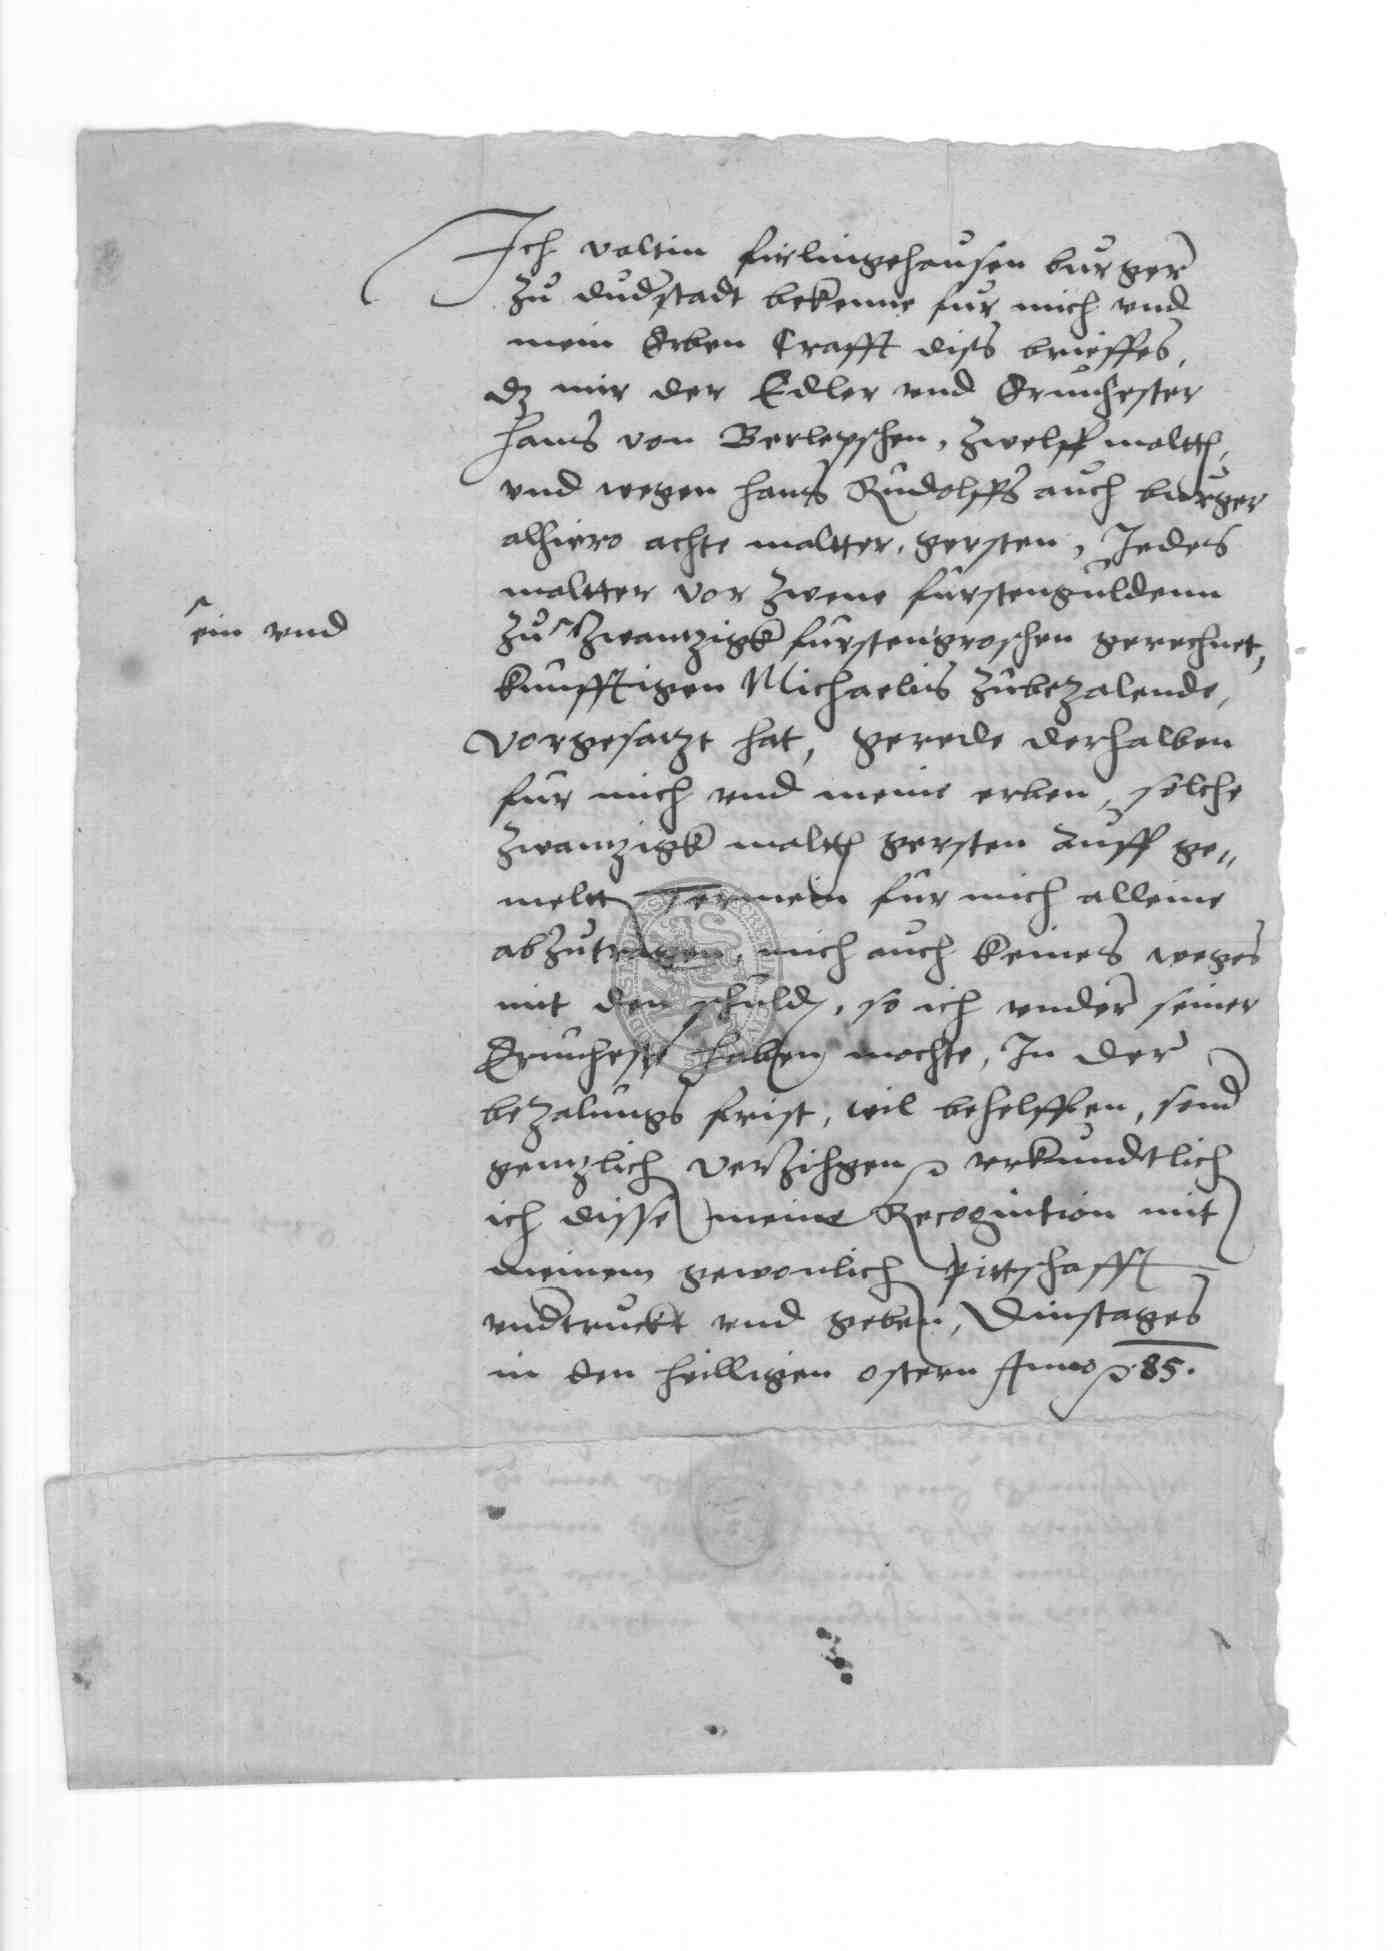 Ich valtin firlingehausen burger
zu dudstadt bekenne fur mich vnd
mein Erben Crafft diss brieffes,
dz mir der Edler vnd Ernuhester
Hans von Berlepschen, zwelff maltt,
vnd wegen hans Rudolffs auch burger
alhiero achte maltter, gersten, Jedes
maltter vor zwene furstenguldenn
ein vnd
zu zwantzigk furstengroschen gerechnet,
kunfftigen Michaelis zubezalende,
vorgesatzt hat, gerede derhalben
fur mich vnd meine erben, solche
zwantzigk maltt gersten auff ge„
meltt Termein fur mich alleine
abzutragen, mich auch keines weges
mit den schuld, so ich vnder seiner
Ernuheste haben mochte, In der
bezalungs frist, wil behelffen, sond
gentzlich verzihgen vrkundtlich
ich disse meine Recognition mit
meinem gewonlich pittschafft
vndtruckt vnd geben, Dinstages
in den heilligen ostern Anno 85.